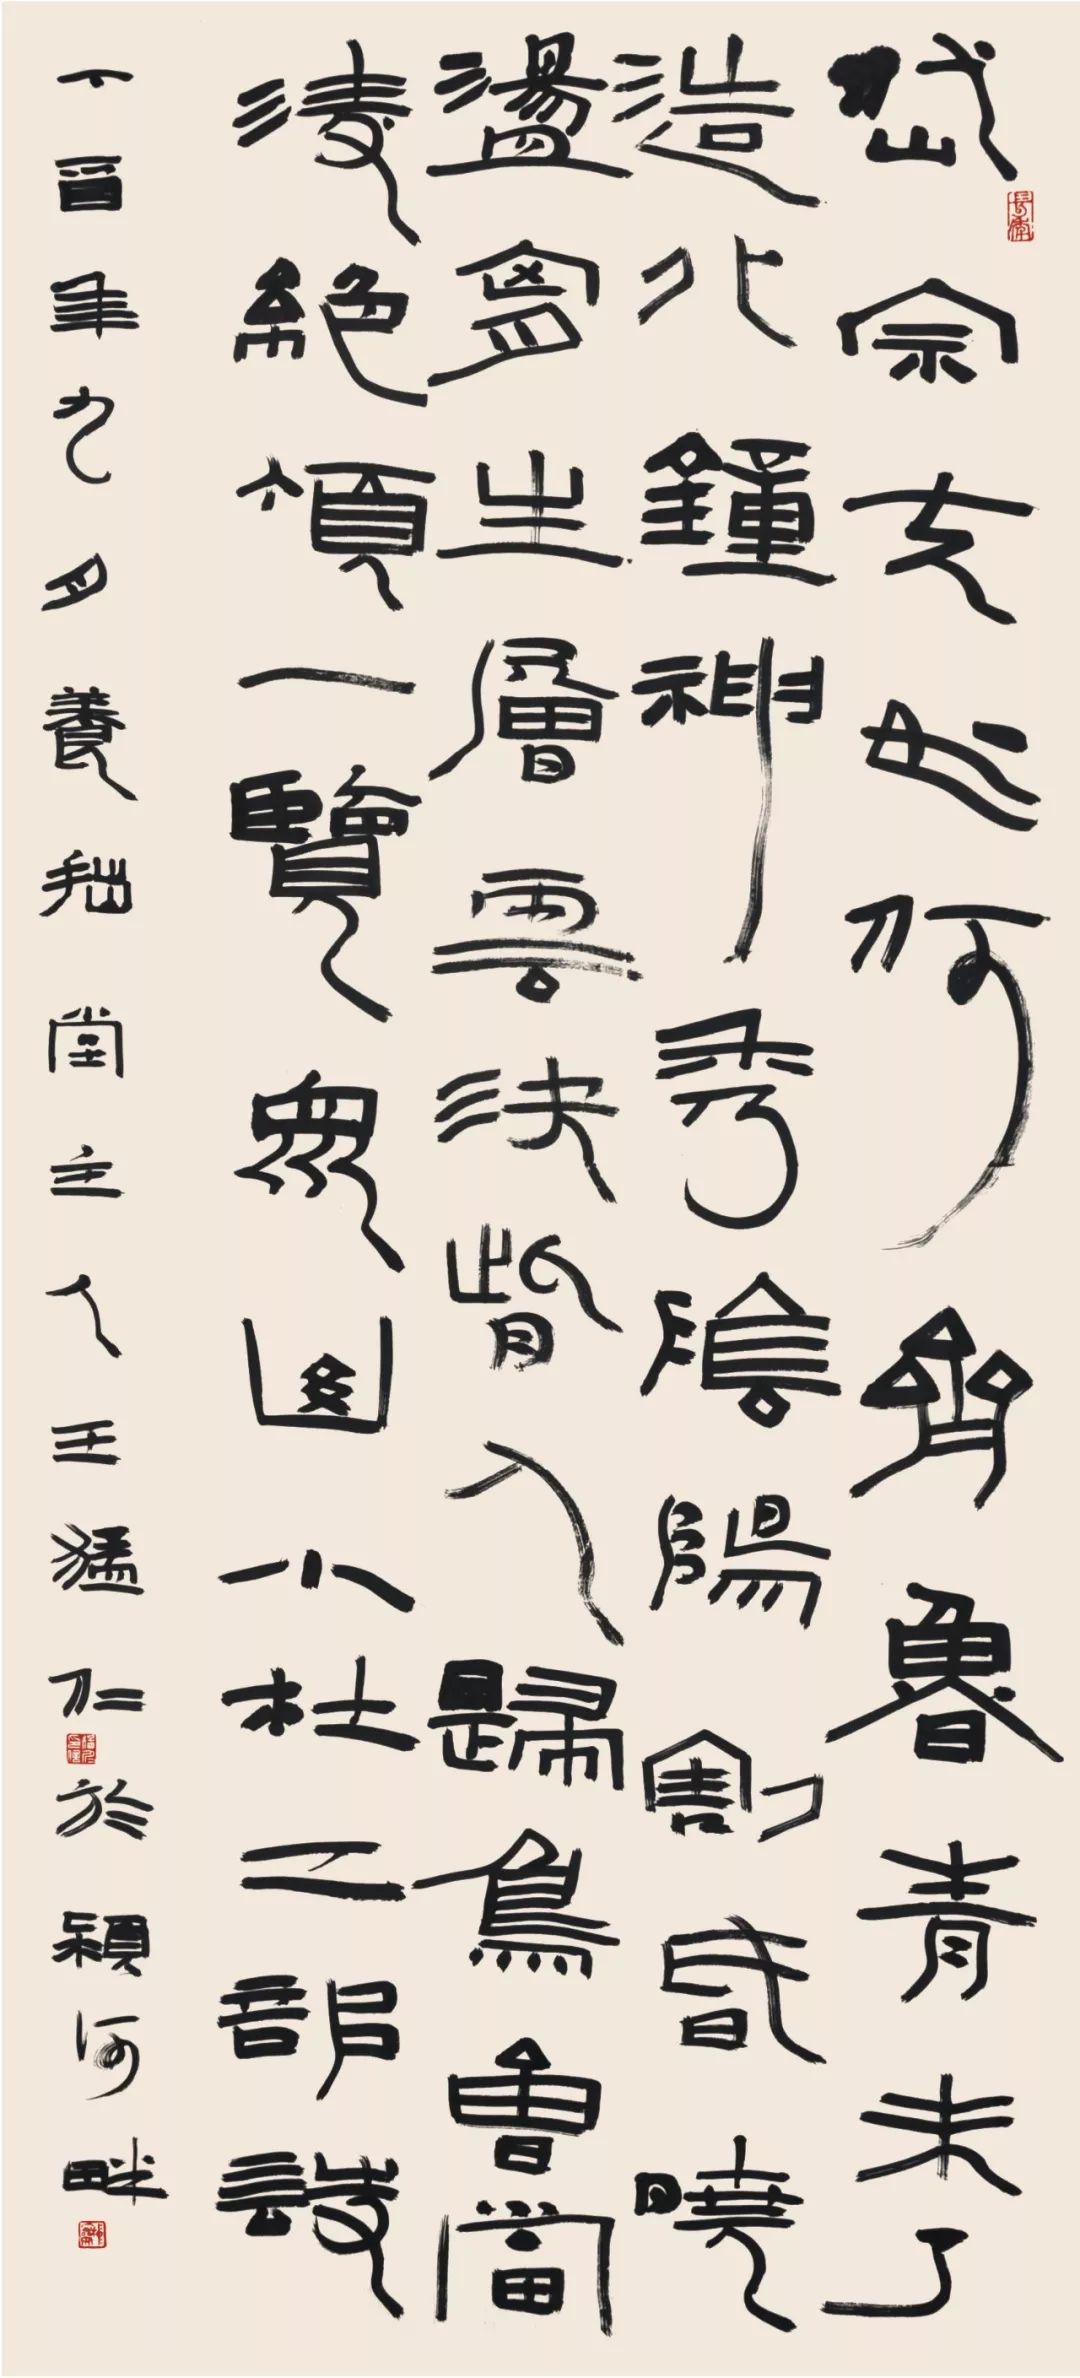 岱宗夫如何齊魯青未了
造化鐘神秀陰陽割昏曉
盪胷生層雲決眥入歸鳥會當
淩絕頂一覽眾山小杜工部詩
丁酉年九月養拙堂主人王猛仁於潁河畔